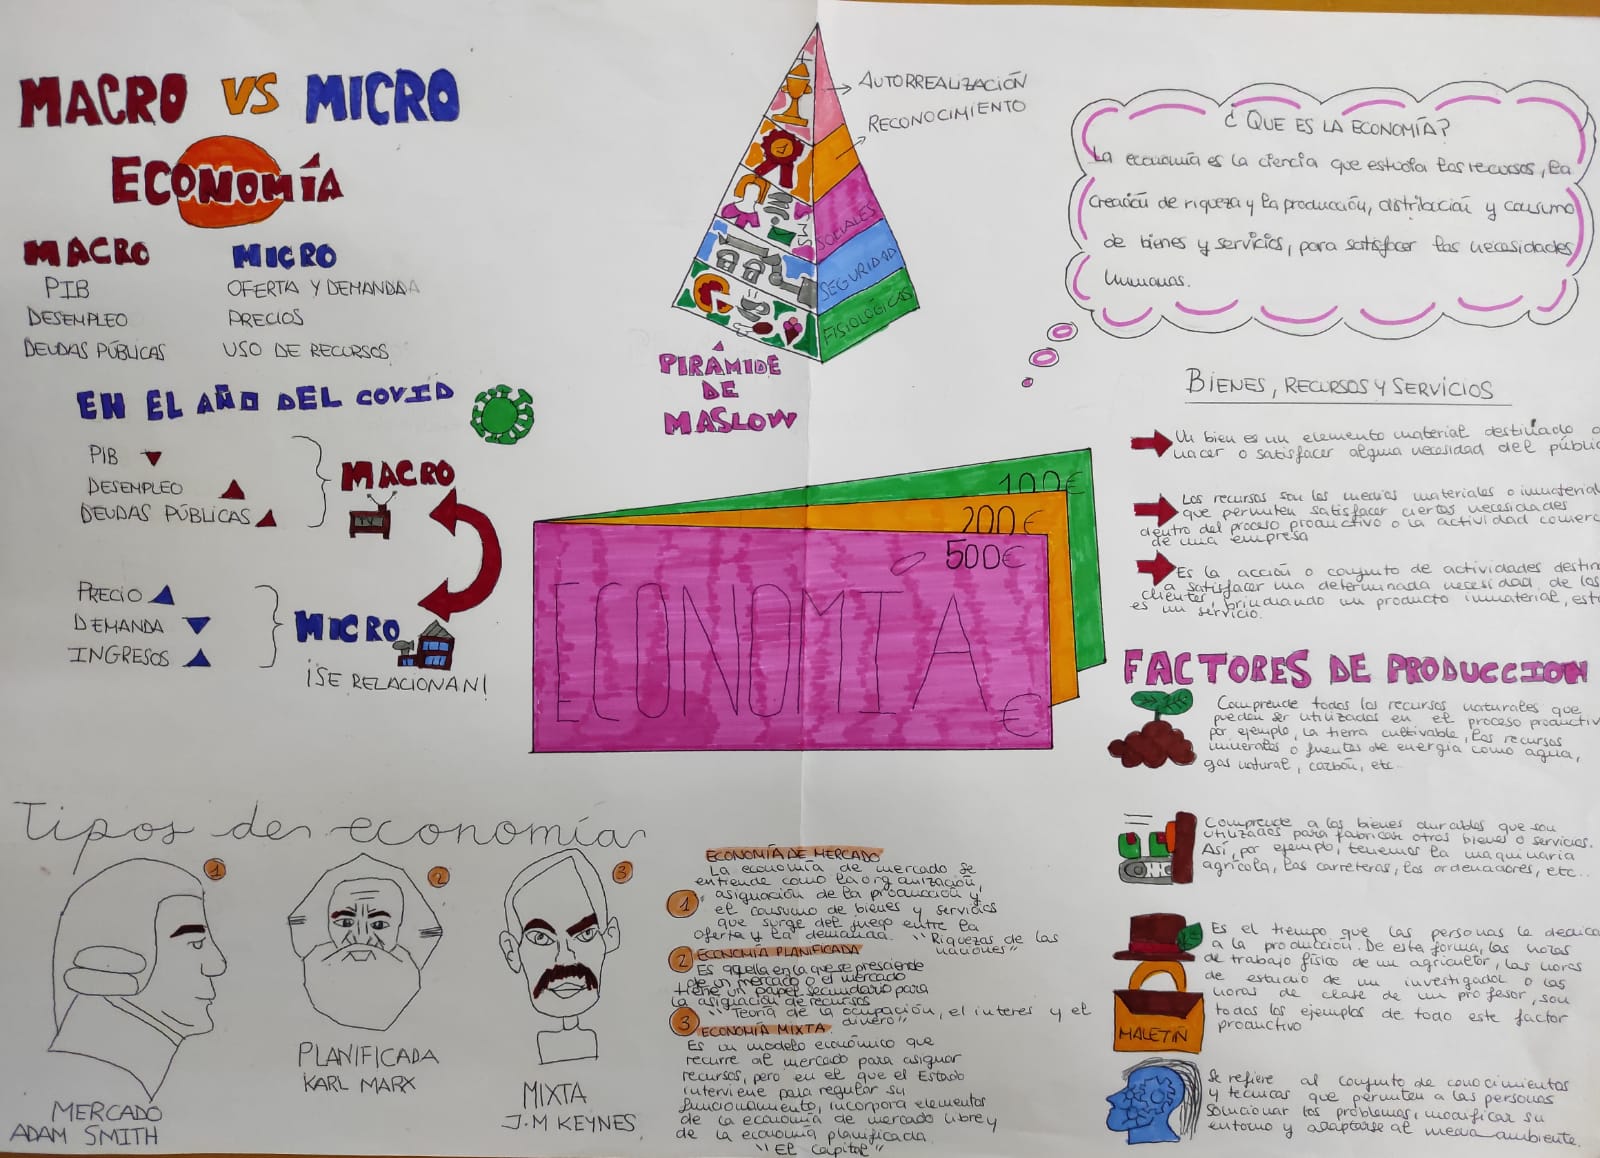 MACRO VS MICRO
ECONOMÍA
MACRO
PIB
DESEMPLEO
DEUDAS PÚBLICAS
MICRO
OFERTA Y DEMANDA
PRECIOS
USO DE RECURSOS
EN EL AÑO DEL COVID
PIB
DESEMPLEO
DEUDAS PÚBLICAS
MACRO
TV
PRECIO
DEMANDA
INGRESOS
MICRO
¡SE RELACIONAN!
AUTORREALIZACIÓN
RECONOCIMIENTO
SOCIALES
SEGURIDAD
FISIOLÓGICAS
1
SMS
PIRÁMIDE
DE
MASLOW
100€
200€
500€
ECONOMÍA
€
¿QUE ES LA ECONOMÍA?
La economía es la ciencia que estudia los recursos, la
creación de riqueza y la producción, distribución y consumo
de bienes y servicios, para satisfacer las necesidades
humanas.
BIENES, RECURSOS Y SERVICIOS
Un bien es un elemento material destinado a
nacer o satisfacer alguna necesidad del públic
Los recursos son los medios materiales o inmaterial
que permiten satisfacer ciertas necesidades
dentro del proceso productivo o la actividad comerc
de una empresa
Es la acción o conjunto de actividades destin
a satisfacer una determinada necesidad de los
clientes, brindando un producto inmaterial, est
es un servicio.
FACTORES DE PRODUCCION
Comprende todos los recursos naturales que
pueden ser utilizados en el proceso productiv
por ejemplo, la tierra cultivable, los recursos
minerales o fuentes de energía como agua,
gas natural, carbón, etc..
Comprende a los bienes durables que son
utilizados para fabricar otros bienes o servicios.
Así, por ejemplo, tenemos la maquinaria
agrícola, las carreteras, los ordenadores, etc...
Es el tiempo que las personas le dedica
a la producción. De esta forma, las horas
de trabajo físico de un agricultor, las horas
de estudio de un investigador o las
horas de clase de un profesor, son
todos los ejemplos de todo este factor
productivo
MALETIN
Se refiere al conjunto de conocimientos
y técnicas que permiten a las personas
solucionar los problemas, modificar su
entorno y adaptarse al medio ambiente.
Tipos de economía
1
MERCADO
ADAM SMITH
2
PLANIFICADA
KARL MARX
3
MIXTA
J.M KEYNES
ECONOMÍA DE MERCADO
1
La economía de mercado se
entiende como la organización,
asignación de la producción y
el consumo de bienes y servicios
que surge del juego entre la
oferta y la demanda. "Riquezas de las
naciones"
2 ECONOMÍA PLANIFICADA
Es aquella en la que se presciende
de un mercado o el mercado
tiene un papel secundario para
la asignación de recursos
"Teoria de la ocupación, el interes y el
dinero"
3 ECONOMÍA MIXTA
Es un modelo económico que
recurre al mercado para asignar
recursos, pero en el que el Estado
interviene para regular su
funcionamiento, incorpora elementos
de la economía de mercado libre y
de la economía planificada
"El Capital"